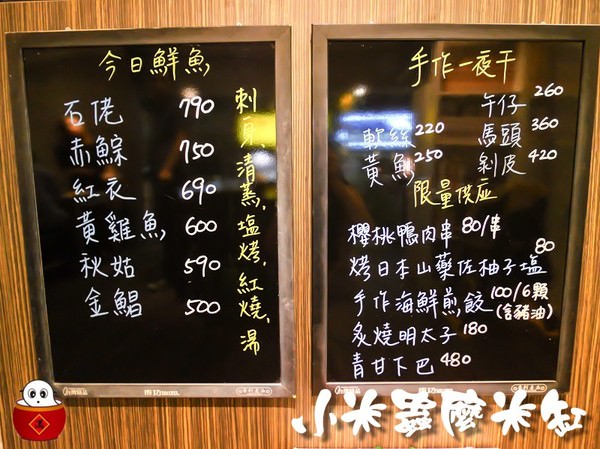 今日鮮魚
石佬 790
赤鯮 750
紅衣 690
黃雞魚 600
秋姑 590
金鯧 500
刺身,清蒸,塩烤,紅燒,湯
手作一夜干
午仔 260
軟絲 220 馬頭 360
黃魚 250 剝皮 420
限量供应
櫻桃鴨肉串 80/串
烤日本山藥佐柚子塩 80
手作海鮮煎餃 100/6顆
(含豬油)
炙燒明太子 180
青甘下巴 480
小米蟲麼米缸